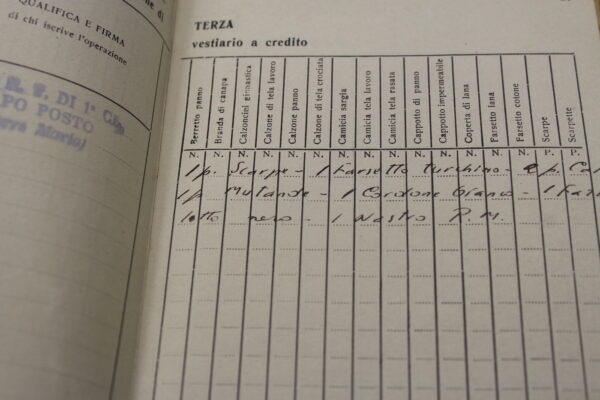 ne di
QUALIFICA E FIRMA
di chi iscrive l'operazione
DI 1ª
PO POSTO
Mario)
TERZA
vestiario a credito
Berretto panno
Branda di canapa
Calzoncini ginnastica
Calzone di tela lavoro
Calzone panno
Calzone di tela crociata
Camicia sargia
Camicia tela lavoro
Camicia tela rasata
Cappotto di panno
Cappotto impermeabile
Coperta di lana
Farsetto lana
Farsetto cotone
Scarpe
Scarpette
N. N. N. N. N. N. N. N. N. N. N. N. N. N. P. P.
1 p. Scarpe - 1 Farsetto turchino - p.
1 p. Mutande - 1 Cordone bianco - 1
letto nero - 1 Nastro P.M.